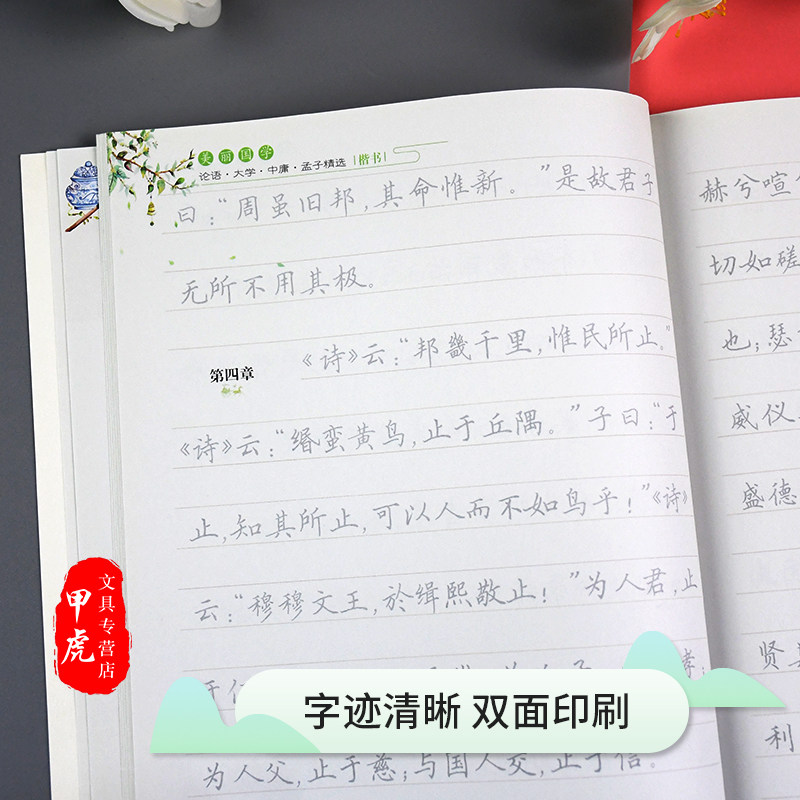 美丽国学
论语·大学·中庸·孟子精选 楷书
曰：“周虽旧邦，其命惟新。”是故君子
无所不用其极。
第四章
《诗》云：“邦畿千里，惟民所止。”
《诗》云：“缗蛮黄鸟，止于丘隅。”子曰：“于
止，知其所止，可以人而不如鸟乎！”《诗》
云：“穆穆文王，於缉熙敬止！”为人君，止
于
为人父，止于慈；与国人交，止于信。
赫兮喧
切如磋
也；瑟
威仪
盛德
贤
利
甲虎
文具专营店
字迹清晰 双面印刷